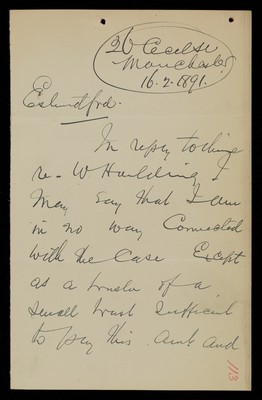 26 Cecil St
Manchester
16.2.1891.
In reply to thine
re - W Harding I
may say that I am
in no way Connected
with the Case Except
as a trustee of a
small trust sufficient
to pay this amt. and
113